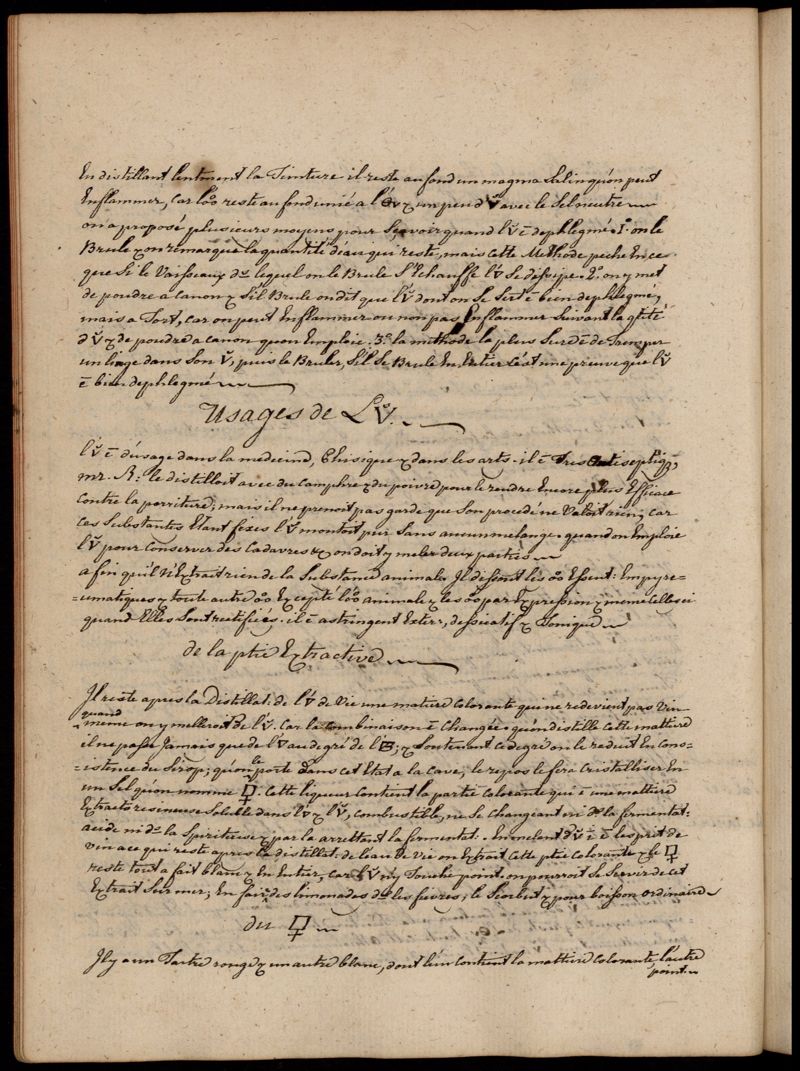 En distillant lentment la Teinture il reste au fond un magma Salin qu'on peut
Enflammer, car l'o°o reste au fond unie a l'🜄 & un peu d'V̊ avec le Sel neutre
on a proposé plusieurs moyens pour Sçavoir quand l'V̊ ē dephlegmé. 1° on le
Brule & on remarque la quantité d'eau qui reste, mais cette Methode peche En ce
que Si le Vaisseaux ds lequel on le Brule S'Echauffe l'V̊ Se dissipe. 2° on y met
de poudre a canon & S'il Brule on dit que l'V̊ dont on Se Sert ē bien dephlegmé,
mais a Tort, car on peut Enflammer ou non pas Enflammer Suivant la qtité
d'V̊ & de poudre a canon quon Emploie. 3° la methode la plus Sure ē de Tremper
un linge dans Son V̊, puis le Bruler, S'il Se Brule En Entier c'est une preuve que l'V̊
ē bien dephlegmé
Usages de L'V̊.
l'V̊ ē d'usage dans la medecine, Phisique & dans les arts. il ē Tres Antiseptiq,
mr. R: le distilloit avec du Camphre & du poivre pour le rendre Encore plus Efficace
contre la porriture; mais il ne prenoit pas garde que Son procedé ne Valoit rien, car
ces Substances Etant fixes l'V̊ montoit pur Sans aucun melange. quand on Emploie
l'V̊ pour conserver des Cadavres & on doit y meler deux parties
a fin qu'il n'Extrait rien de la Substance animale Il dissout les o°o Essent: Empyre=
=umatiques & toute autre o°o Excepté l'o°o animale & les o°o par Expression & meme Celles ci
quand Elles Sont rectifiées. il ē astringent Exter., dessicatif & Tonique
de la ptie Extractive
Il reste apres la Distillat. de l'V̊ de Vie une matiere Colorante qui ne redevient pas Vin
quand
meme on y melleroit de l'V̊. Car la combinaison ē changée. qu'on distille cette mattiere
il ne passe Jamais que de l'V au degré de l'; & Soutenant ce degré on le reduit En cons=
=istence du Sirop; qu'on le porte dans cet Etat a la Cave; le repos le fera Cristalliser En
un Sel qu'on nomme 🜿. Cette liqueur Contient la partie Colorante qui ē une mattiere
Extracto resineuse Soluble dans l'V & l'V̊, combustible, ne Se changeant ni ds la fermentat.
acide ni ds la Spiritueuse & par la arrettant la fermentat. En melant d'V̊ ē ē l'esprit de
vin a ce qui reste apres la distillat. de l'eau de Vie on Extrait Cette ptie Colorante & le 🜿
reste tout a fait blanc & En Entier, Car l'V̊ n'y Touche point. on pourroit Se Servir de cet
Extrait Sur mer; En faire des limonades ds les fievres; le Scorbut & pour boisson ordinaire
du 🜿
Il y a un Tartre rouge & un autre blanc, dont l'un contient la mattiere Colorante, l'autre
point.